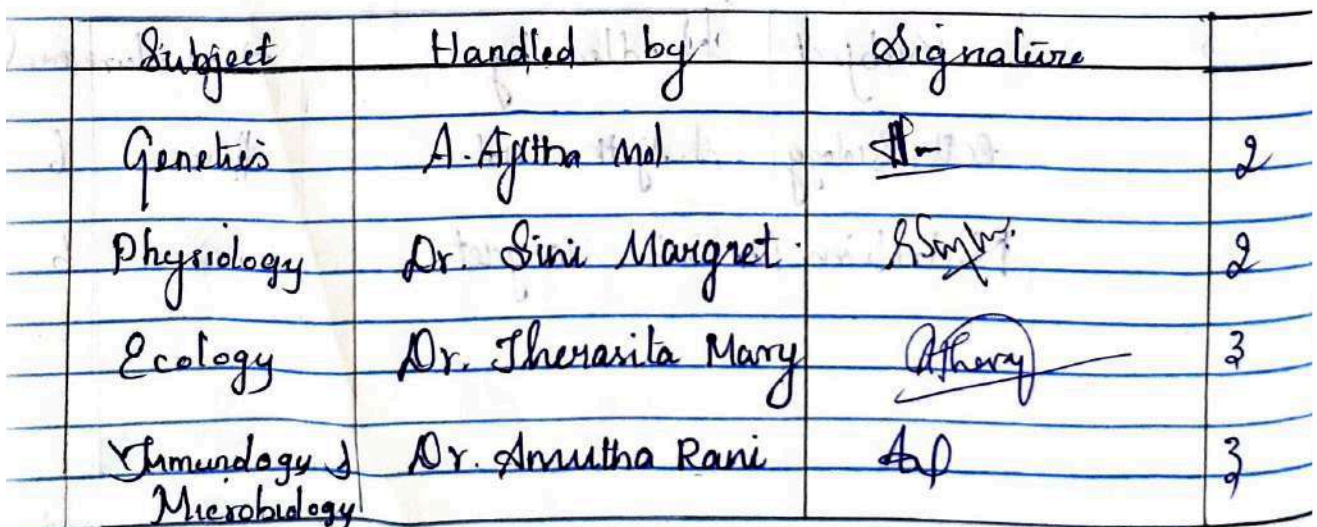 Subject Handled by Signature
Genetics A. Ajitha Mol. 2
Physiology Dr. Sini Margret. 2
Ecology Dr. Therasita Mary 3
Immunology & Dr. Amutha Rani 3
Microbiology